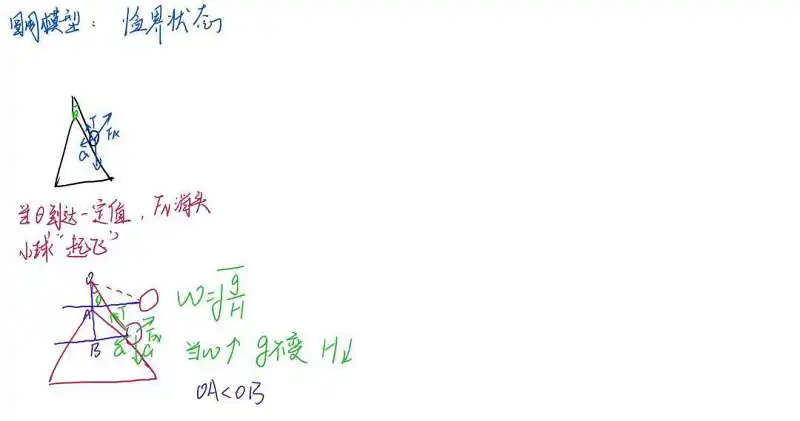 圆周模型：临界状态
θ
T
FN
a
当θ到达一定值，FN消失
小球“起飞”
O
θ
A
T
FN
B
a
G
ω=√g/H
当ω↑ g不变 H↓
OA<OB